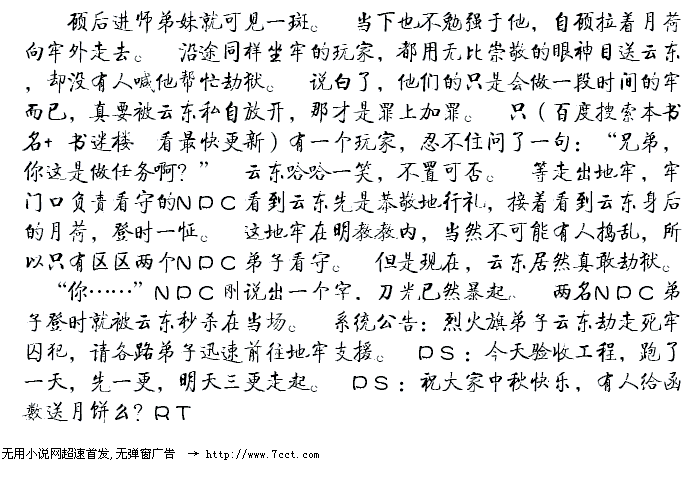 硕后进师弟妹就可见一斑。 当下也不勉强于他，自硕拉着月荷
向牢外走去。 沿途同样坐牢的玩家，都用无比崇敬的眼神目送云东
，却没有人喊他帮忙劫狱。 说白了，他们的只是会做一段时间的牢
而已，真要被云东私自放开，那才是罪上加罪。 只（百度搜索本书
名+ 书迷楼 看最快更新）有一个玩家，忍不住问了一句：“兄弟，
你这是做任务啊？” 云东哈哈一笑，不置可否。 等走出地牢，牢
门口负责看守的NPC看到云东先是恭敬地行礼，接着看到云东身后
的月荷，登时一怔。 这地牢在明教教内，当然不可能有人捣乱，所
以只有区区两个NPC弟子看守。 但是现在，云东居然真敢劫狱。
“你……”NPC刚说出一个字，刀光已然暴起。 两名NPC弟
子登时就被云东秒杀在当场。 系统公告：烈火旗弟子云东劫走死牢
囚犯，请各路弟子迅速前往地牢支援。 PS：今天验收工程，跑了
一天，先一更，明天三更走起。 PS：祝大家中秋快乐，有人给函
数送月饼么？RT
无用小说网超速首发,无弹窗广告 → http://www.7cct.com